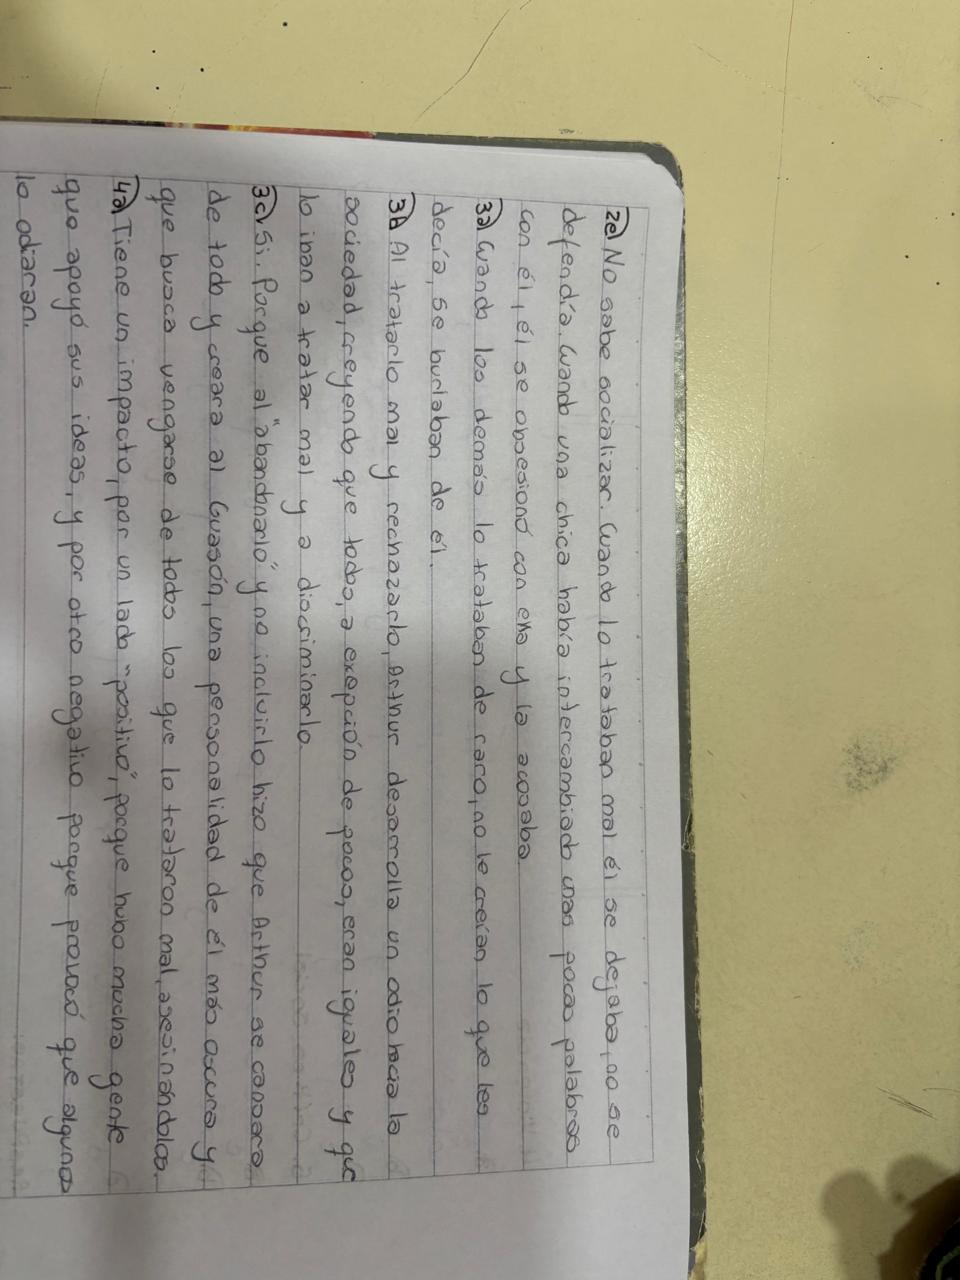 2e) No sabe socializar. Cuando lo trataban mal él se dejaba, no se
defendía. Cuando una chica había intercambiado unas pocas palabras
con él, él se obsesionó con ella y la acosaba.
3a) Cuando los demás lo trataban de raro, no le creían lo que les
decía, se burlaban de él.
3b) Al tratarlo mal y rechazarlo, Arthur desarrolla un odio hacia la
sociedad, creyendo que todos, a exepción de pocos, eran iguales y que
lo iban a tratar mal y a discriminarlo.
3c) Si. Porque al "abandonarlo" y no incluirlo hizo que Arthur se cansara
de todo y creara al Guasón, una personalidad de él más oscura y
que busca vengarse de todos los que lo trataron mal, asesinándolos.
4a) Tiene un impacto, por un lado "positivo", porque hubo mucha gente
que apoyó sus ideas, y por otro negativo porque provocó que algunos
lo odiaran.